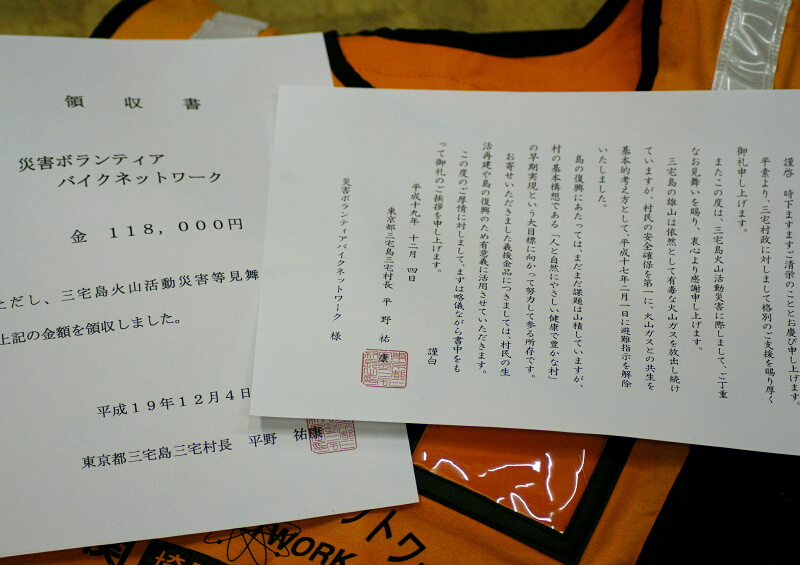 領収書
災害ボランティア
バイクネットワーク
金 118,000円
ただし、三宅島火山活動災害等見舞
上記の金額を領収しました。
平成19年12月4日
東京都三宅島三宅村長 平野 祐康
謹啓 時下ますますご清栄のこととお慶び申し上げます。
平素より、三宅村政に対しまして格別のご支援を賜り厚く
御礼申し上げます。
またこの度は、三宅島火山活動災害に際しまして、ご丁重
なお見舞いを賜り、衷心より感謝申し上げます。
三宅島の雄山は依然として有毒な火山ガスを放出し続け
ていますが、村民の安全確保を第一に、火山ガスとの共生を
基本的考え方として、平成十七年二月一日に避難指示を解除
いたしました。
島の復興にあたっては、まだまだ課題は山積していますが、
村の基本構想である「人と自然にやさしい健康で豊かな村」
の早期実現という大目標に向かって努力して参る所存です。
お寄せいただきました義援金品につきましては、村民の生
活再建や島の復興のため有意義に活用させていただきます。
この度のご厚情に対しまして、まずは略儀ながら書中をも
って御礼のご挨拶を申し上げます。
謹白
平成十九年 十二月 四日
東京都三宅島三宅村長 平野 祐康
災害ボランティアバイクネットワーク 様
ットワ
WORK
関
埼